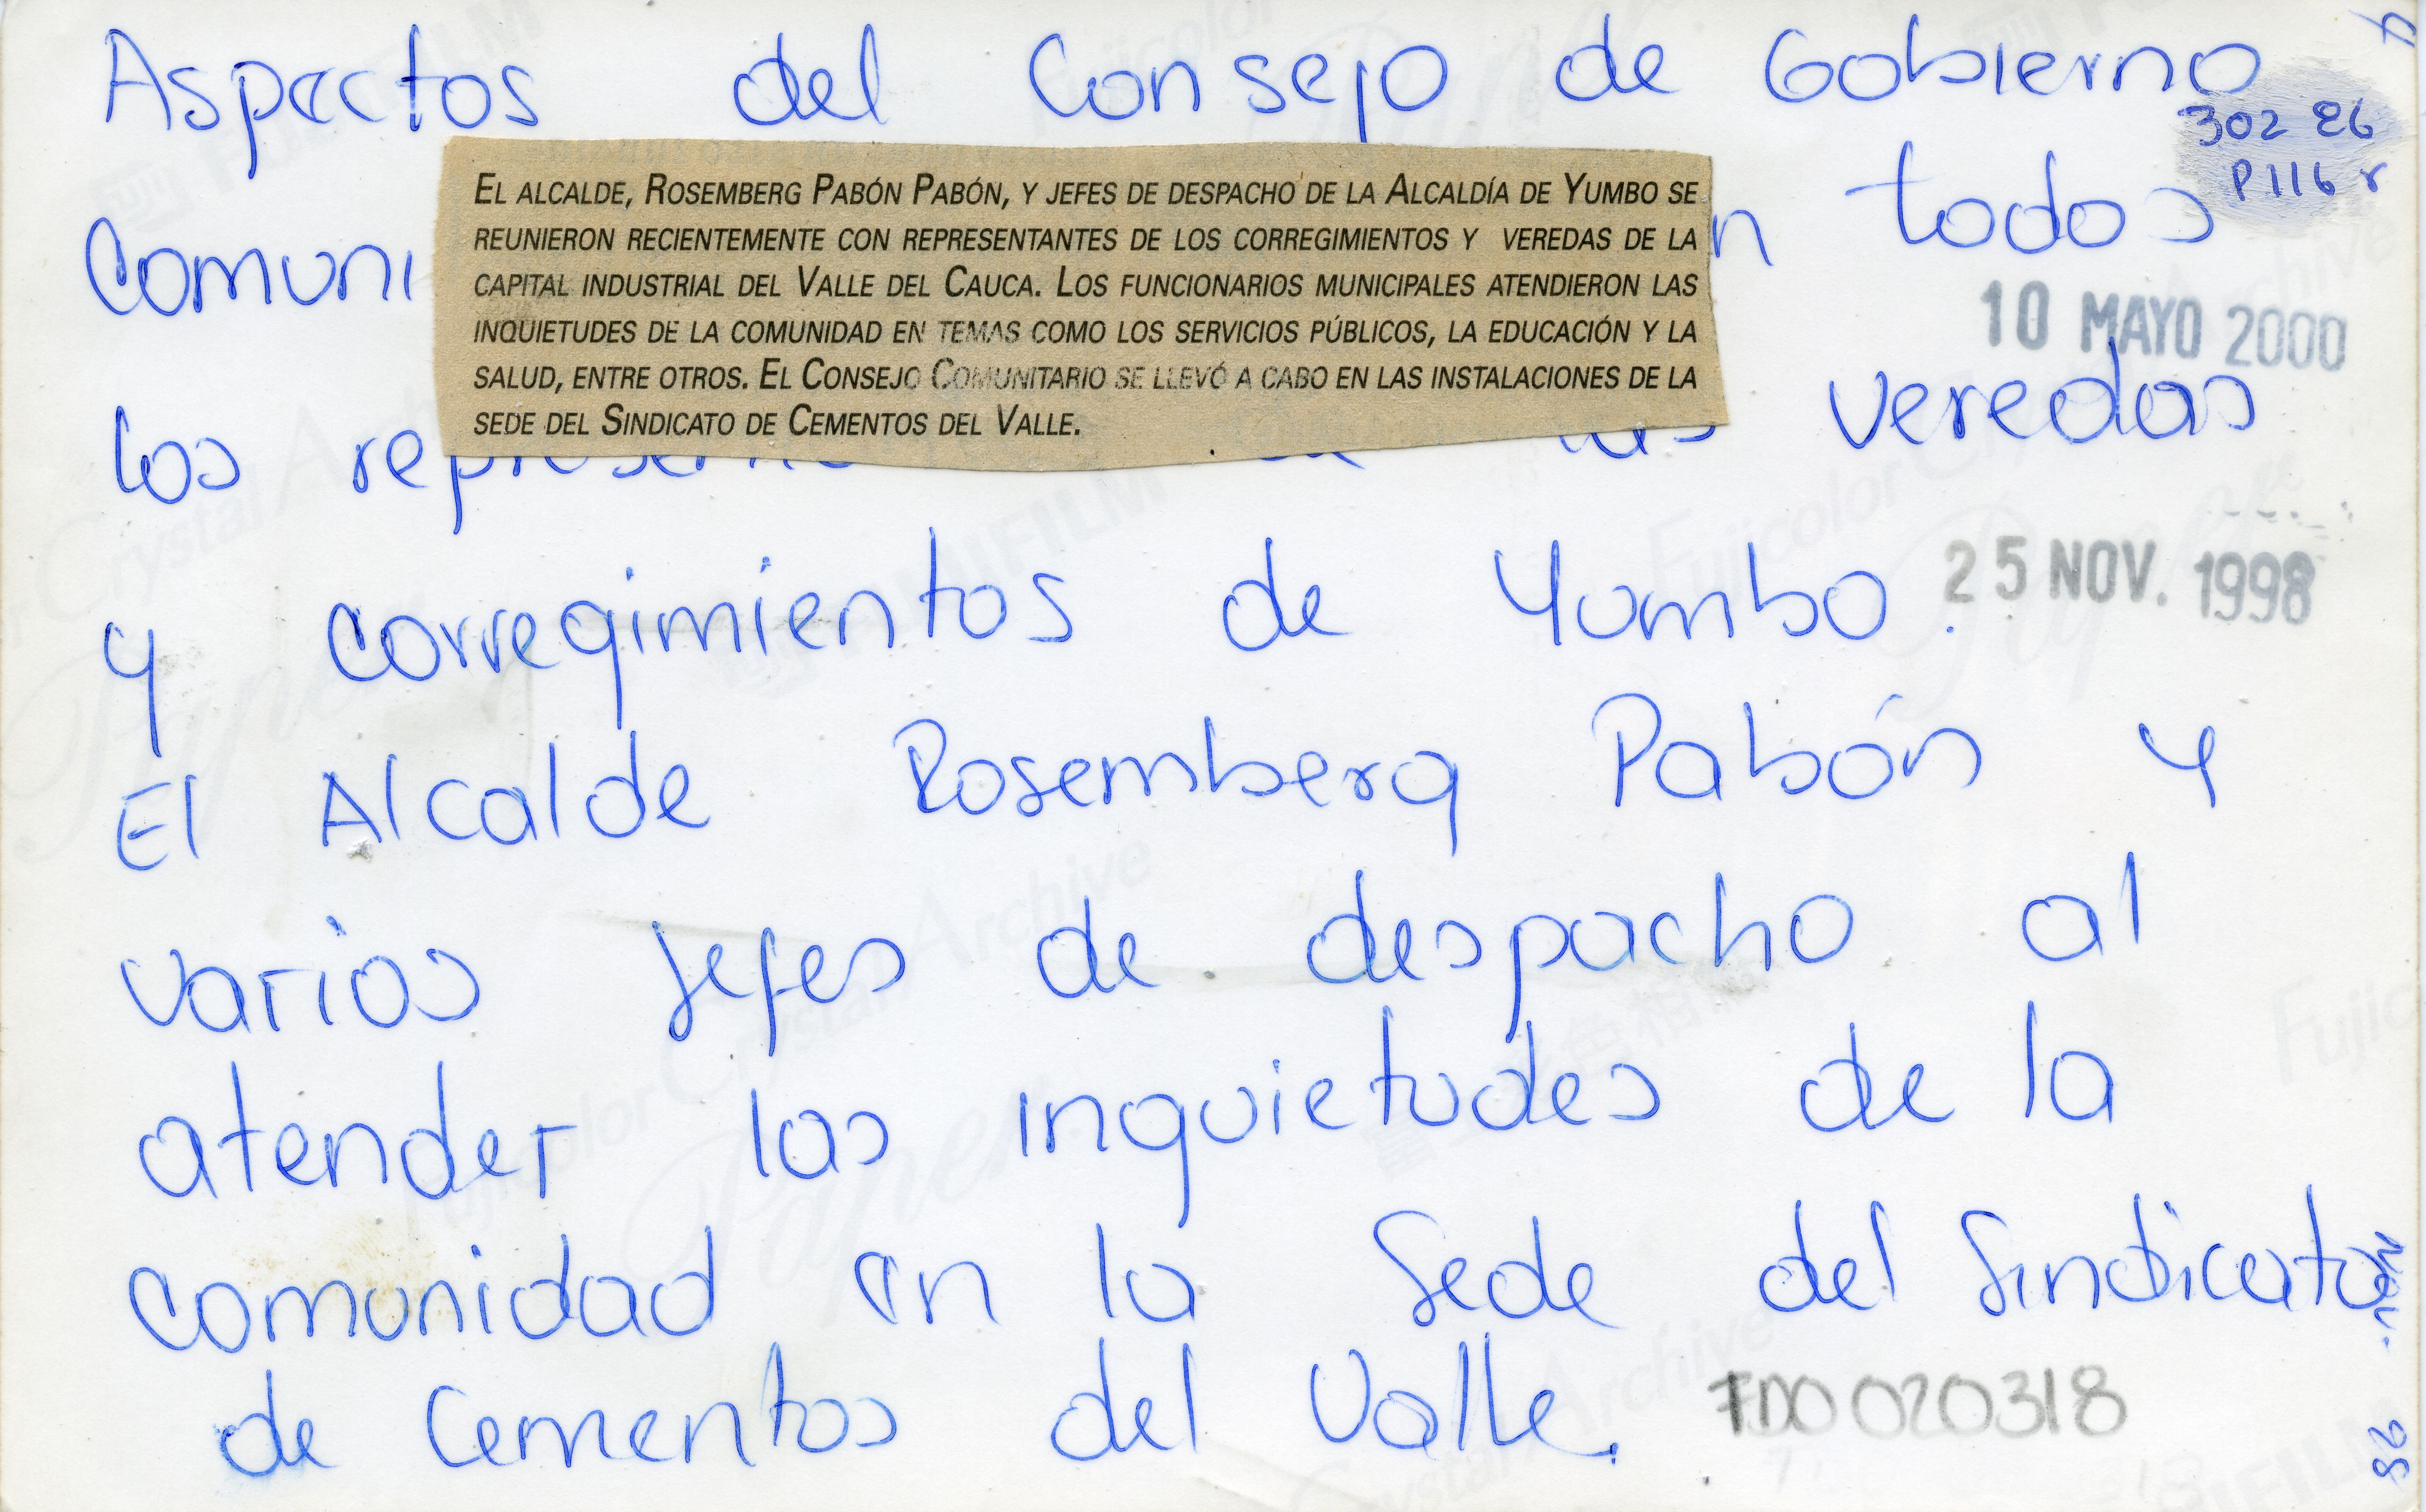 Aspectos del Consejo de Gobierno
302 26
P116 r
EL ALCALDE, ROSEMBERG PABÓN PABÓN, Y JEFES DE DESPACHO DE LA ALCALDÍA DE YUMBO SE
REUNIERON RECIENTEMENTE CON REPRESENTANTES DE LOS CORREGIMIENTOS Y VEREDAS DE LA
CAPITAL INDUSTRIAL DEL VALLE DEL CAUCA. LOS FUNCIONARIOS MUNICIPALES ATENDIERON LAS
INQUIETUDES DE LA COMUNIDAD EN TEMAS COMO LOS SERVICIOS PÚBLICOS, LA EDUCACIÓN Y LA
SALUD, ENTRE OTROS. EL CONSEJO COMUNITARIO SE LLEVÓ A CABO EN LAS INSTALACIONES DE LA
SEDE DEL SINDICATO DE CEMENTOS DEL VALLE.
Comuni n todos
10 MAYO 2000
los las veredas
25 NOV. 1998
y corregimientos de Yumbo.
El Alcalde Rosemberg Pabón y
varios jefes de despacho al
atender las inquietudes de la
comunidad en la Sede del Sindicato
de Cementos del Valle.
FDO 020318
Nov. 98